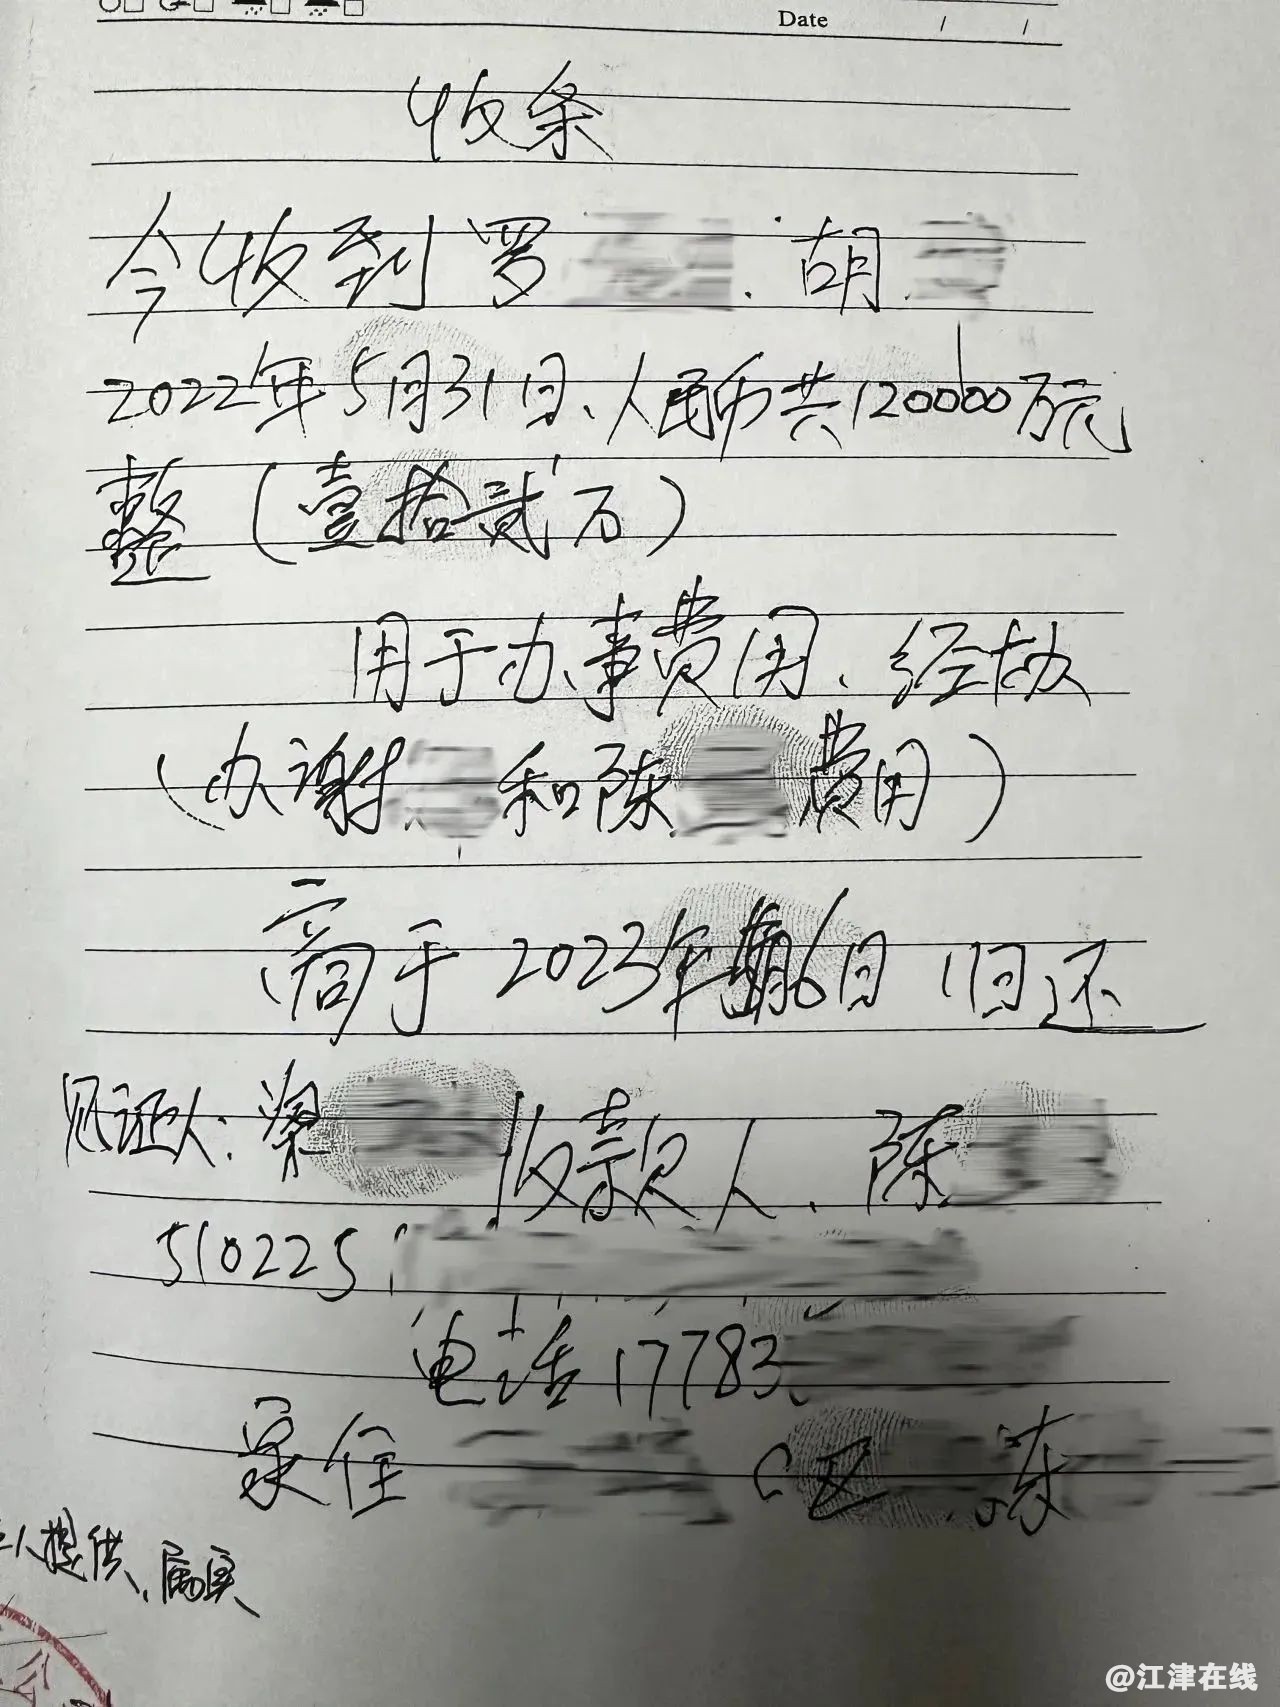 Date / /
收条
今收到罗 . 胡
2022年5月31日、人民币共120000万元
整(壹拾贰万)
用于办事费用、经办
(办谢 和陈 费用)
商于2023年 6日归还
见证人:梁 收款人、陈
510225
电话17783
家住 C区 栋
人提供、属实
公
@江津在线